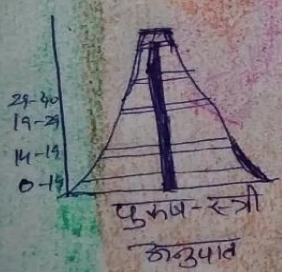 29-40
19-29
14-19
0-14
पुरूष-स्त्री
अनुपात